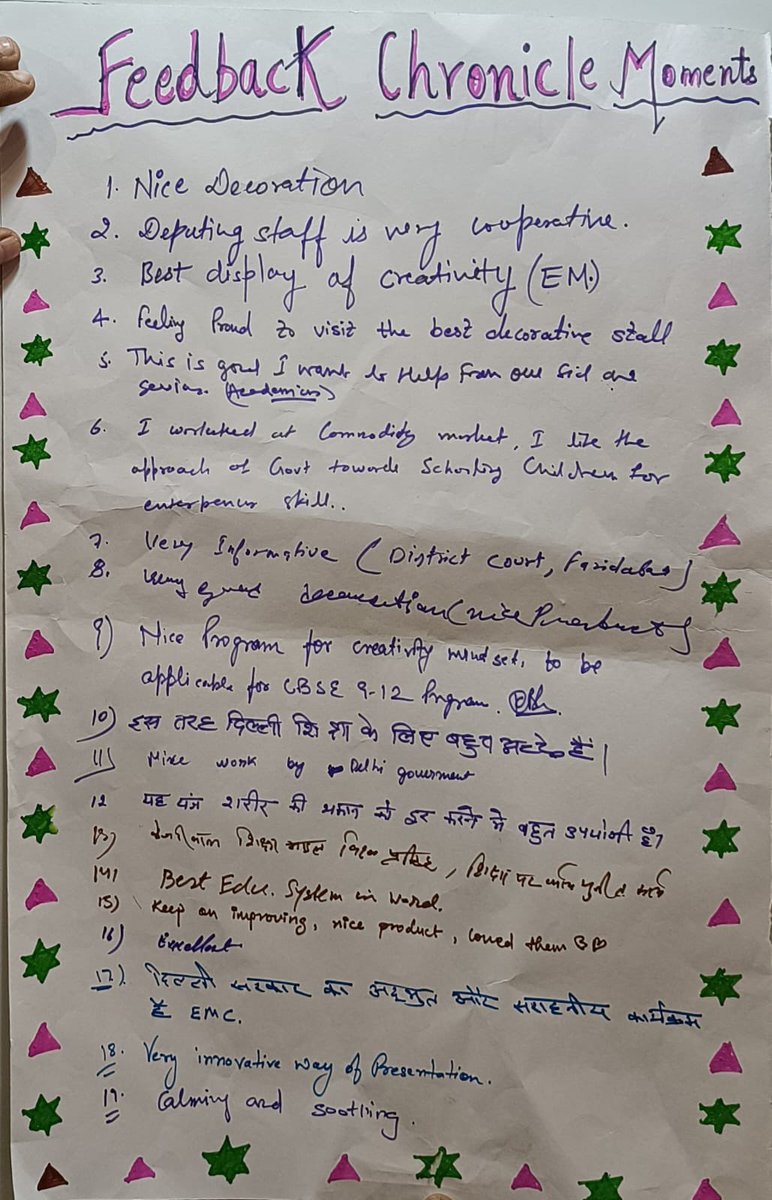 Feedback Chronicle Moments
1. Nice Decoration
2. Deputing staff is very cooperative.
3. Best display of creativity (EM.)
4. Feeling Proud to visit the best decorative stall
5. This is good I want to Help from our sid are
(Academics)
6. I worked at Commodity market, I like the
approach of Govt towards Schooling Children for
skill..
7. Very Informative (District Court, Faridabad)
8. Very good (nice Product)
9) Nice Program for creativity mindset, to be
applicable for CBSE 9-12 Program.
10) इस तरह दिल्ली शिक्षा के लिए बहुत अच्छे हैं।
11) Nice work by Delhi goverment
12 यह यंत्र शरीर की थकान को दूर करने में बहुत उपयोगी है।
13) शिक्षा , शिक्षा पर
14) Best Edu. System in world.
15) Keep on improving, nice product, loved them
16) Excellent
17) दिल्ली सरकार का अद्भुत और सराहनीय कार्यक्रम
है EMC.
18. Very innovative way of Presentation.
19. Calming and soothing.